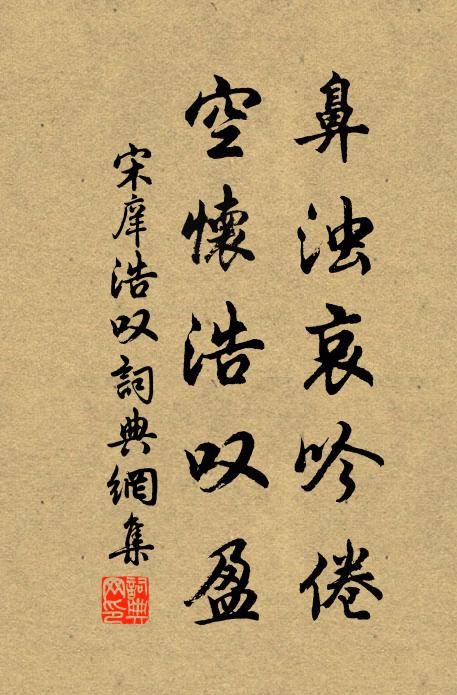 鼻浊哀吟倦
空懷浩叹盈
宋庠浩叹詞典網集